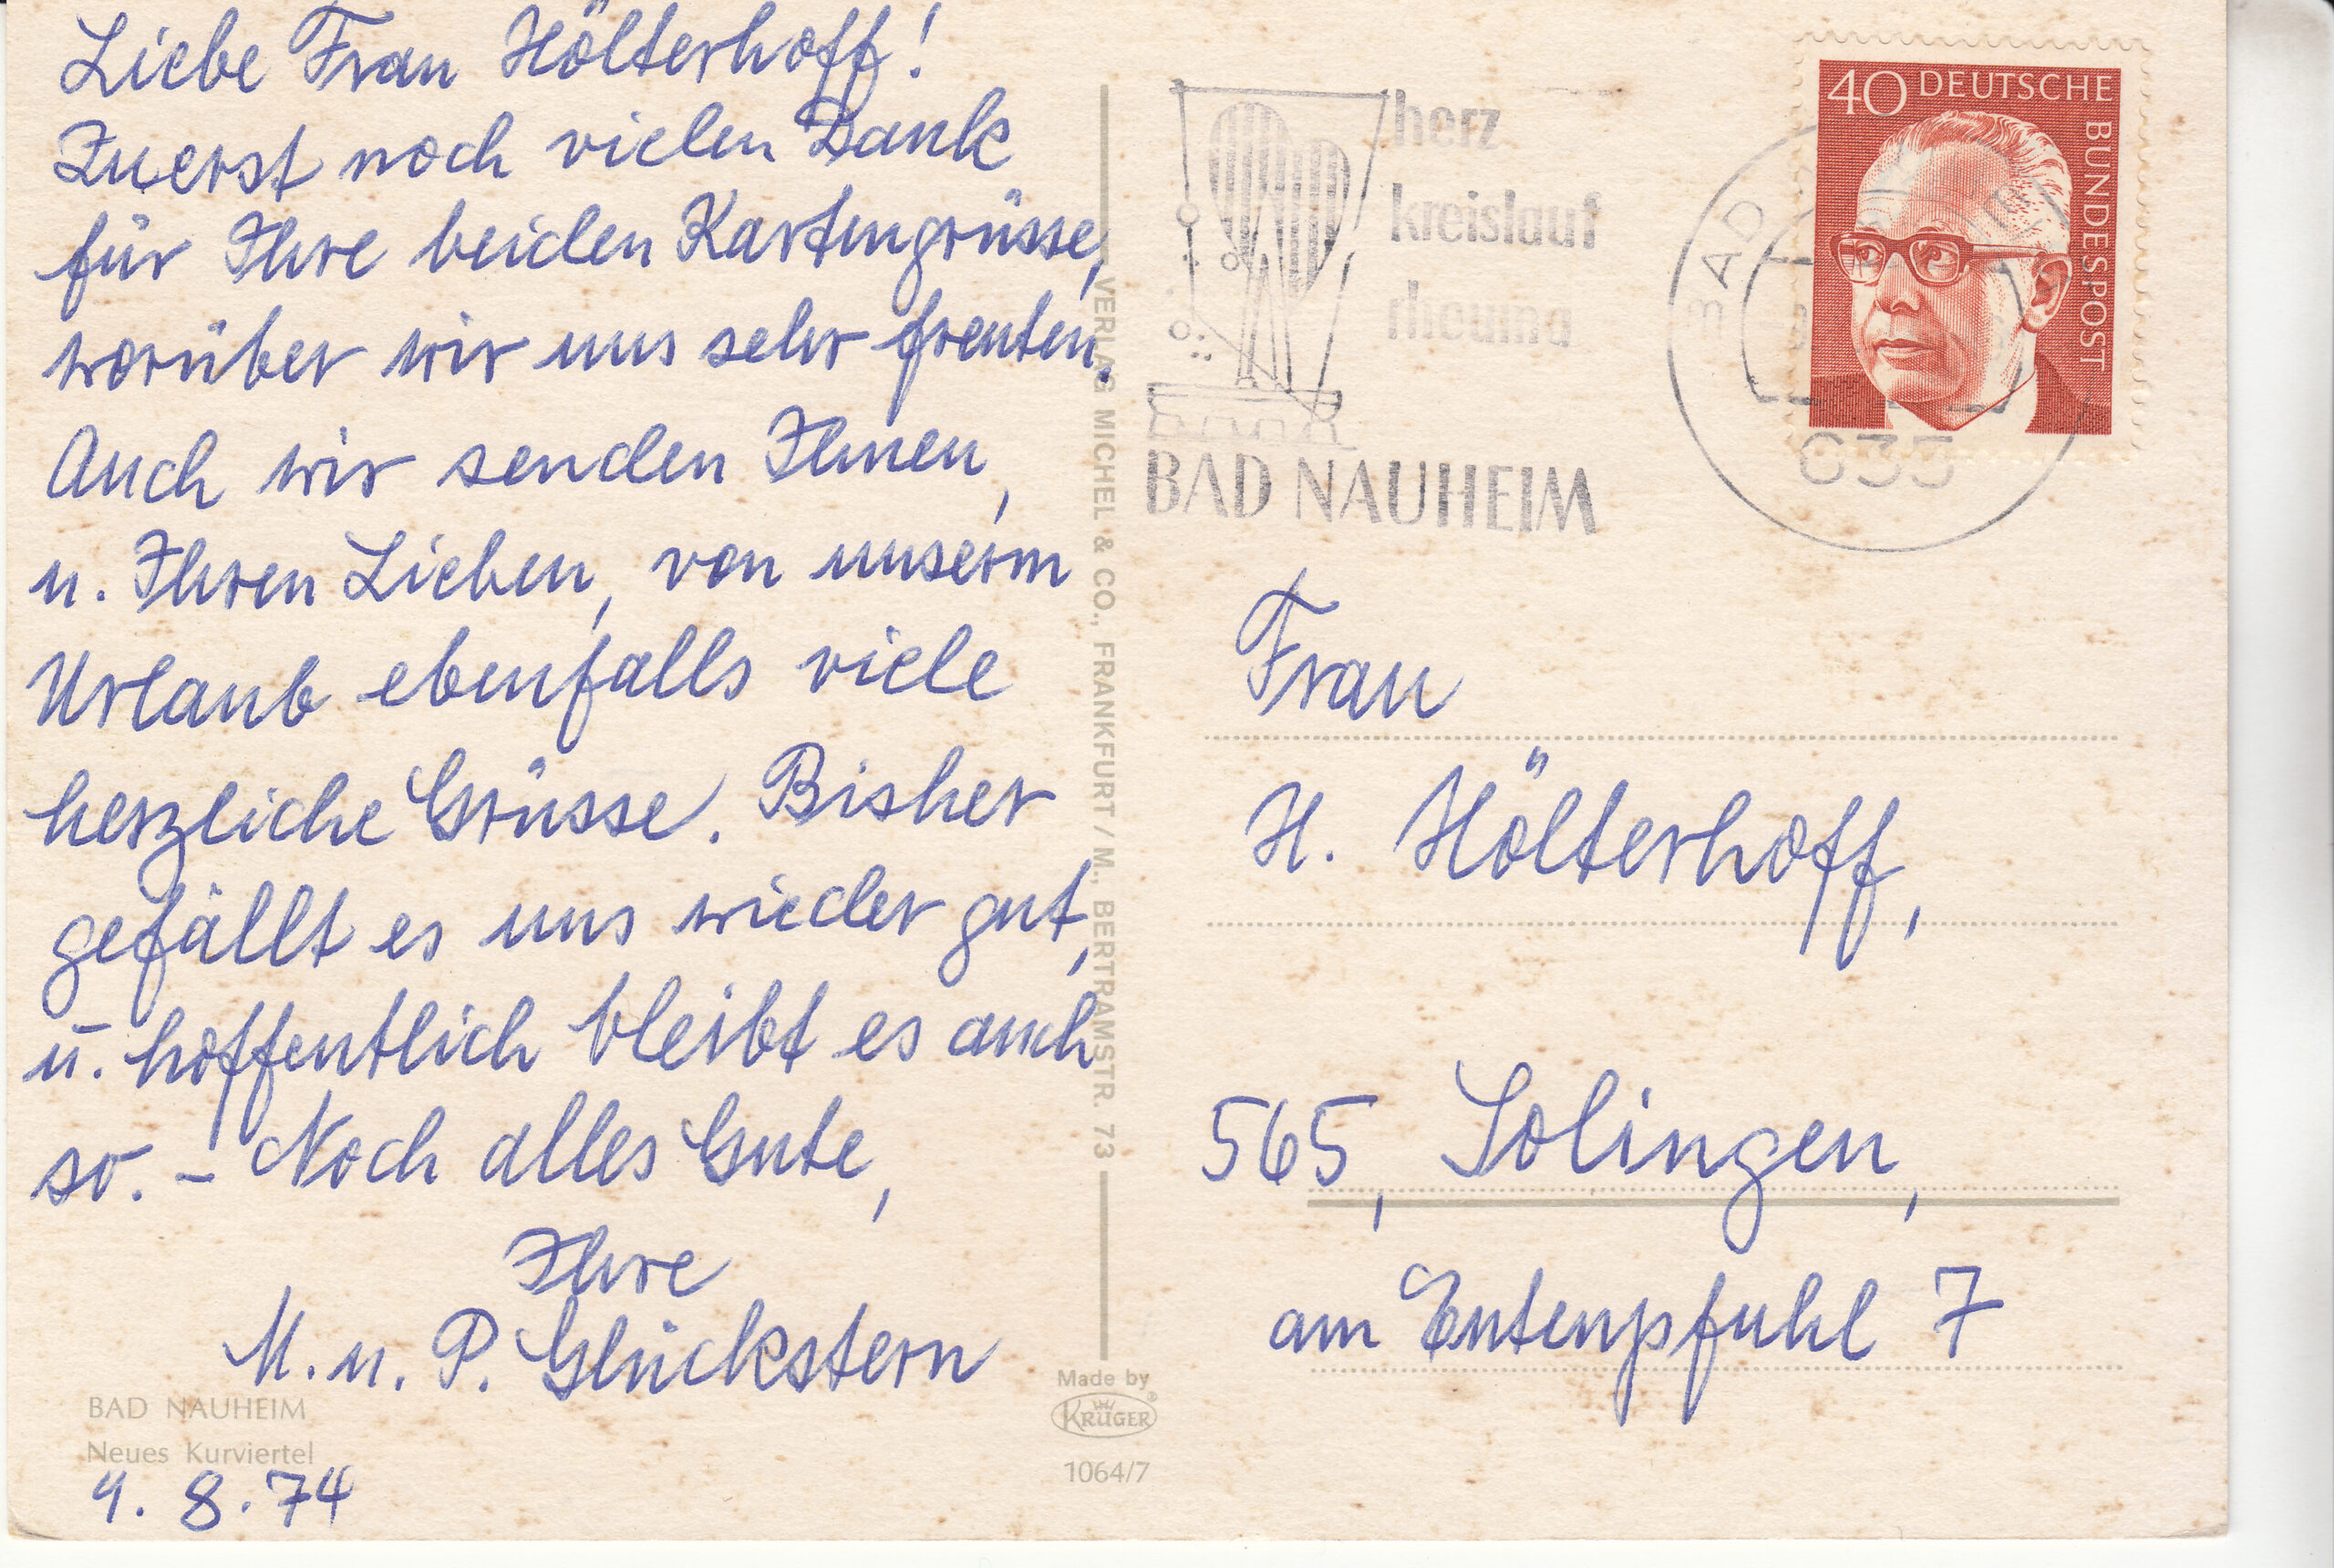 Liebe Frau Hölterhoff!
Zuerst noch vielen Dank
für Ihre beiden Kartengrüsse,
worüber wir uns sehr freuten.
Auch wir senden Ihnen,
u. Ihren Lieben, von unserm
Urlaub ebenfalls viele
herzliche Grüsse. Bisher
gefällt es uns wieder gut,
u. hoffentlich bleibt es auch
so. - Noch alles Gute,
Ihre
M. u. P. Glückstern
BAD NAUHEIM
Neues Kurviertel
9. 8. 74
VERLAG MICHEL & CO., FRANKFURT / M., BERTRAMSTR. 73
Made by
KRÜGER®
1064/7
herz
kreislauf
rheuma
BAD NAUHEIM
BAD
635
40 DEUTSCHE BUNDESPOST
Frau
H. Hölterhoff,
565, Solingen,
am Entenpfuhl 7